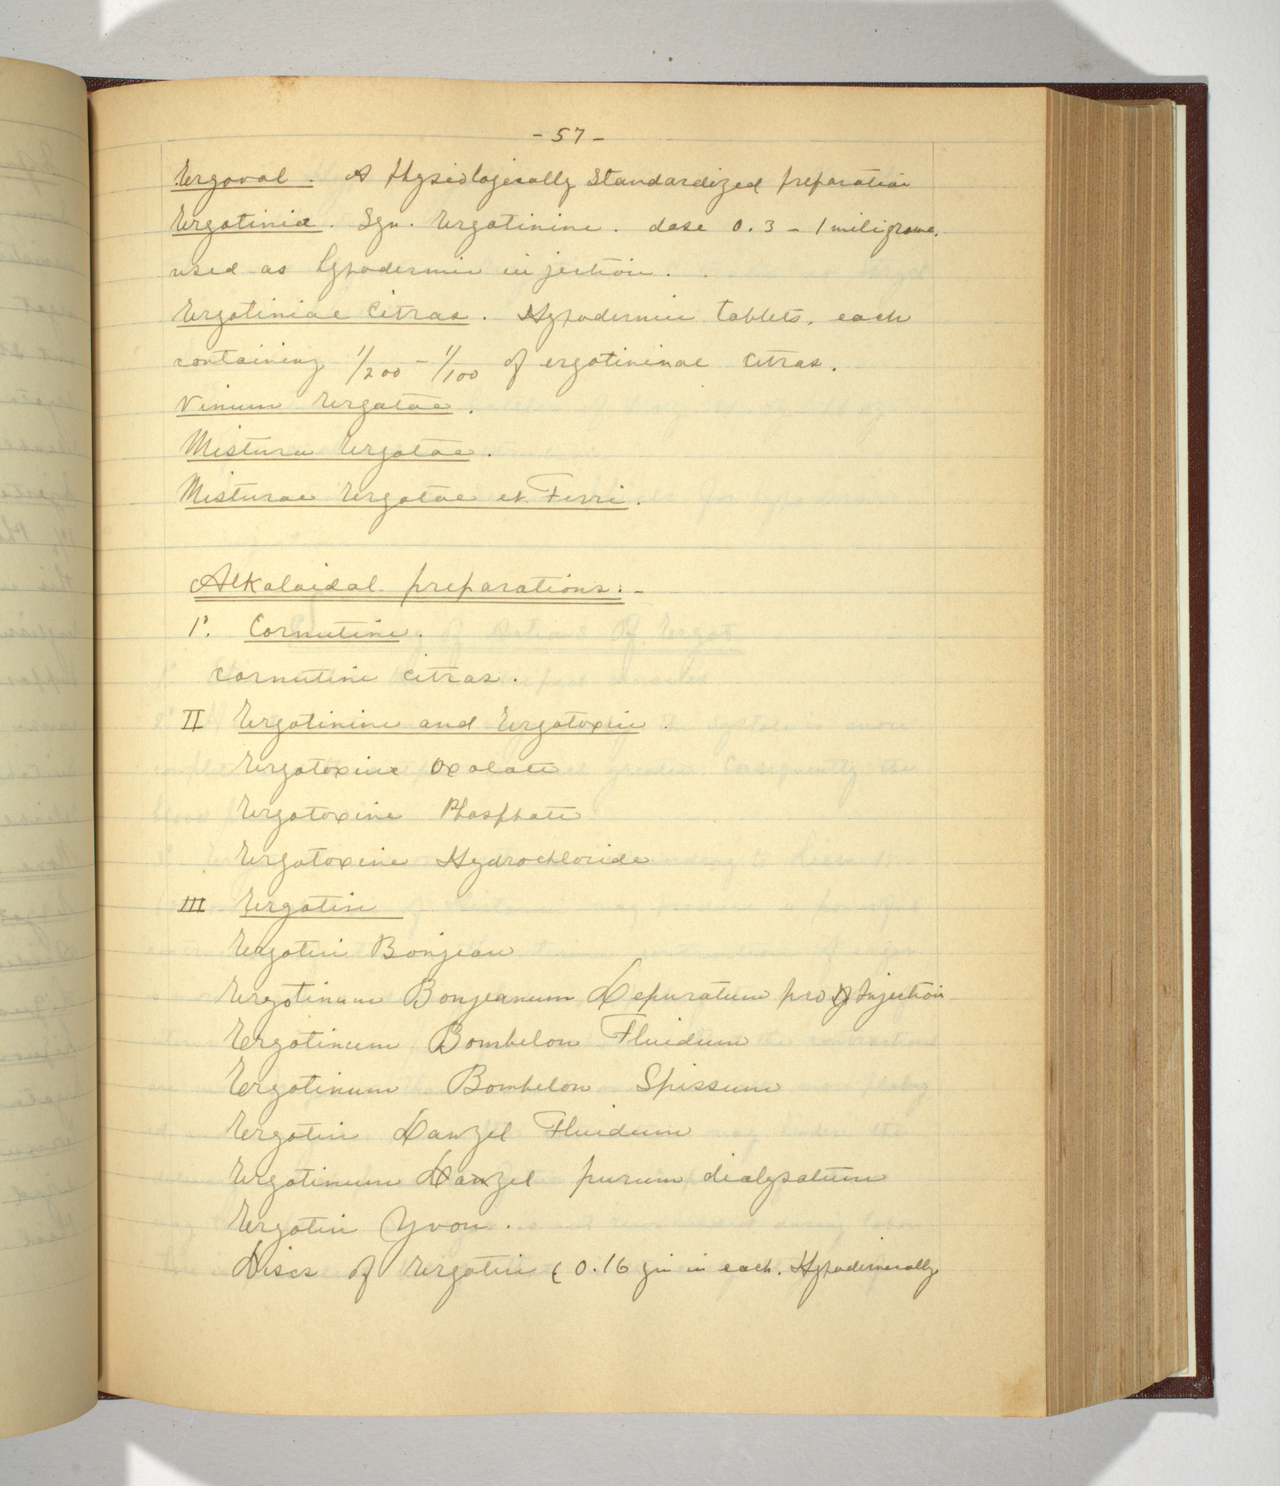 - 57 -
Ergoval. A Physiologically Standardized preparation
Ergotiniae. Syn. Ergotinine. dose 0.3 - 1 miligrame.
used as hypodermic injection.
Ergotiniae Citras. Hypodermic tablets, each
containing 1/200 - 1/100 of ergotininae citras.
Vinum Ergotae.
Mistura Ergotae.
Misturae Ergotae et Ferri.
Alkaloidal preparations:-
1°. Cornutine.
Cornutine citras.
II Ergotinine and Ergotoxin.
Ergotoxine Oxalate
Ergotoxine Phosphate
Ergotoxine Hydrochloride
III Ergotin
Ergotin Bonjean
Ergotinum Bonjeanum Depuratum pro Injection
Ergotinum Bombelon Fluidum
Ergotinum Bombelon Spissum
Ergotin Danzel Fluidum
Ergotinum Danzel purum dialysatum
Ergotin Yvon.
Discs of Ergotin ( 0.16 gm in each. Hypodermically